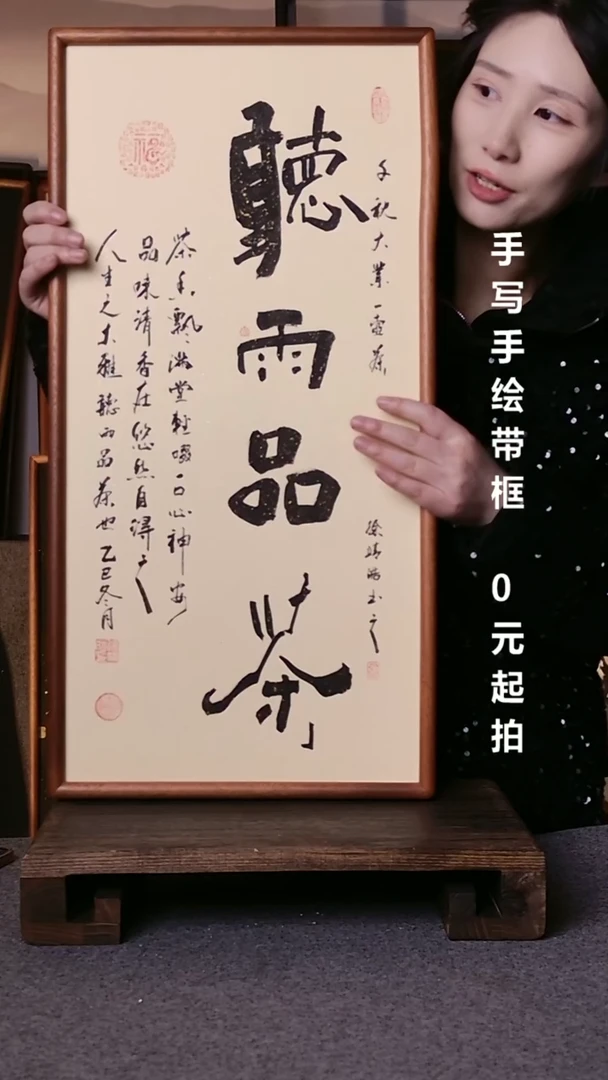 千秋大業一壺茶
聽雨品茶
茶香飘满堂轻啜一口心神安
品味清香在悠然自得之
人生之大雅聽雨品茶也乙巳冬月
福
手写手绘带框 0元起拍